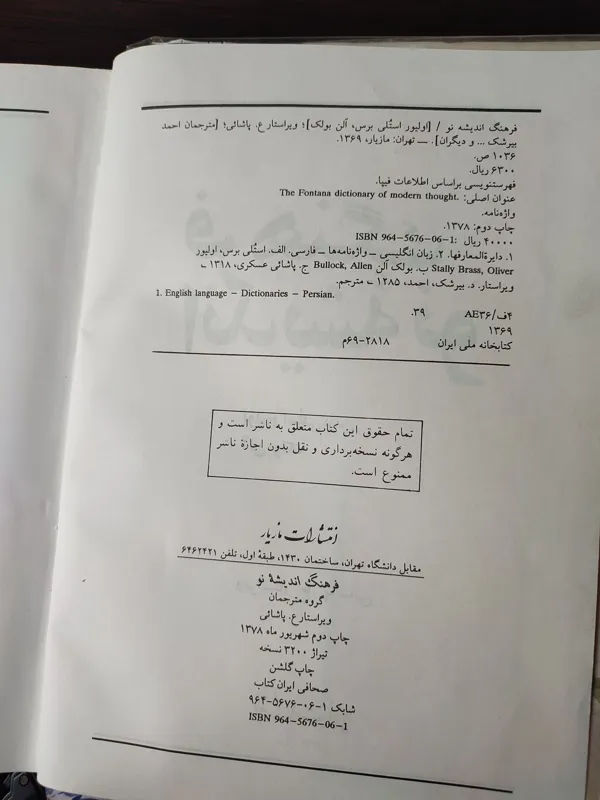 فرهنگ اندیشه نو / [اولیور استُلی برس، اَلن بولک]؛ ویراستار ع. پاشائی؛ [مترجمان احمد
بیرشک ... و دیگران]. — تهران: مازیار، ۱۳۶۹.
۱۰۳۶ ص.
۶۳۰۰ ریال.
فهرستنویسی براساس اطلاعات فیپا.
عنوان اصلی: The Fontana dictionary of modern thought.
واژه‌نامه.
چاپ دوم: ۱۳۷۸.
۴۰۰۰۰ ریال :ISBN 964-5676-06-1
۱. دایرةالمعارفها. ۲. زبان انگلیسی — واژه‌نامه‌ها — فارسی. الف. استُلی برس، اولیور
Stally Brass, Oliver ب. بولک آلن Bullock, Allen ج. پاشائی عسکری، ۱۳۱۸ -
ویراستار. د. بیرشک، احمد، ۱۲۸۵ - مترجم.
1. English language – Dictionaries – Persian.
۴ف/AE۳۶ ۳۹.
۱۳۶۹
کتابخانه ملی ایران ۲۸۱۸-۶۹م
تمام حقوق این کتاب متعلق به ناشر است و
هرگونه نسخه‌برداری و نقل بدون اجازهٔ ناشر
ممنوع است.
انتشارات مازیار
مقابل دانشگاه تهران، ساختمان ۱۴۳۰، طبقهٔ اول، تلفن ۶۴۶۲۴۲۱
فرهنگ اندیشهٔ نو
گروه مترجمان
ویراستار ع. پاشائی
چاپ دوم شهریور ماه ۱۳۷۸
تیراژ ۳۲۰۰ نسخه
چاپ گلشن
صحافی ایران کتاب
شابک ۱-۰۶-۵۶۷۶-۹۶۴
ISBN 964-5676-06-1